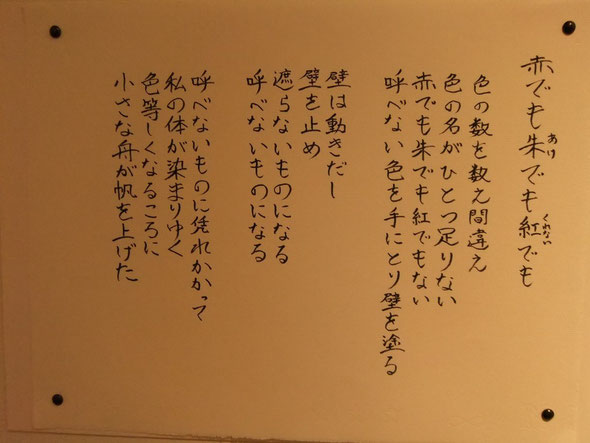 赤でも朱でも紅でも
あけ
くれない
色の数を数え間違え
色の名がひとつ足りない
赤でも朱でも紅でもない
呼べない色を手にとり壁を塗る
壁は動きだし
壁を止め
遮らないものになる
呼べないものになる
呼べないものに凭れかかって
私の体が染まりゆく
色等しくなるころに
小さな舟が帆を上げた